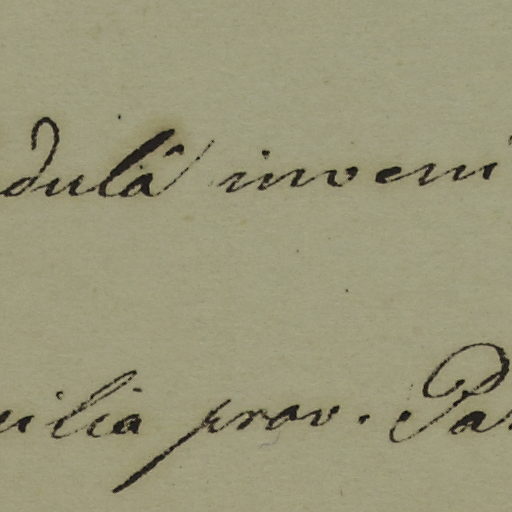 dulâ inveni
cilia prov. Pa